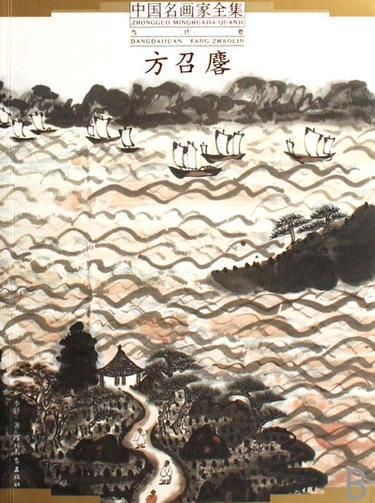 中国名画家全集
ZHONGGUO MINGHUAJIA QUANJI
当代卷
DANGDAIJUAN FANG ZHAOLIN
方召麐
著 河北教育出版社
B